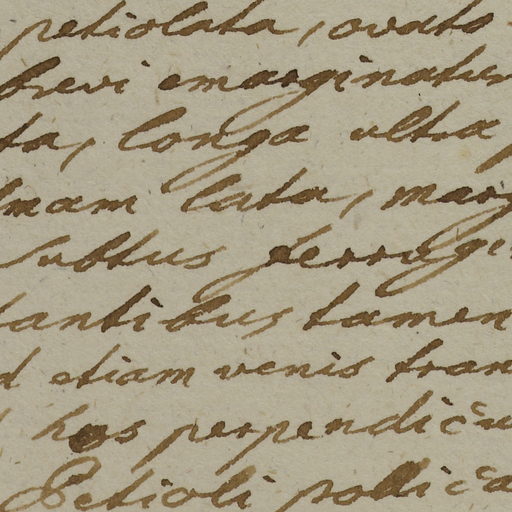 petiolata, ovato-
brevi emarginatur
ta, longa ultra
lmam lata, marg
subtus ferrugi
tantibus tamen
d etiam venis tran
hos perpendicu
Petioli pollica